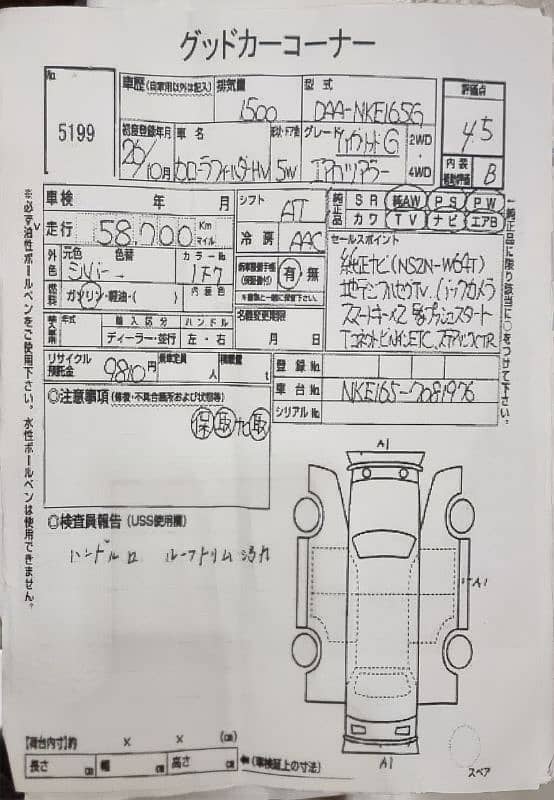 グッドカーコーナー
No.
5199
車歴(自家用以外は記入)
排気量
1500
型式
DAA-NKE165G
評価点
4.5
初度登録年月
26/10月
車名
カローラフィルダーHV
形状・ドア数
5W
グレード ハイブリッドG
エアロツアラー
2WD
4WD
内装
補助評価
B
車検 年 月
走行 58,700 Km
マイル
シフト
AT
冷房
AAC
純正品
SR 純AW PS PW
カワ TV ナビ エアB
外色
元色
シルバー
色替
カラーNo.
1F7
内装色
燃料
ガソリン・軽油・( )
有・無
セールスポイント
純正ナビ(NSZN-W64T)
地デジフルセグTV. バックカメラ
スマートキー×2 プッシュスタート
ETC.
輸入車用
年式
輸入区分
ハンドル
ディーラー・並行
左・右
名義変更期限
月 日
リサイクル
預託金
9810円
乗車定員
人
積載量
t
登録No.
車台No.
NKE165-7081976
シリアルNo.
◎注意事項(修復・不具合箇所および状態等)
保 取 ナビ取
◎検査員報告(USS使用欄)
ハンドルロ ルーフトリム汚れ
A1
A1
A1
スペア
【荷台内寸】約 × × (cm)
長さ cm 幅 cm 高さ cm
(車検証上の寸法)
※必ず油性ボールペンをご使用下さい。水性ボールペンは使用できません。
純正品に限り該当に○をつけて下さい。